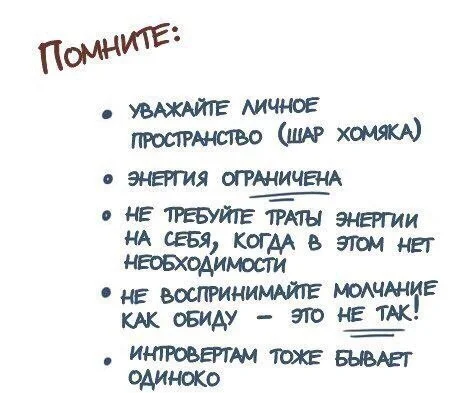 Помните:
• уважайте личное
пространство (шар хомяка)
• энергия ограничена
• не требуйте траты энергии
на себя, когда в этом нет
необходимости
• не воспринимайте молчание
как обиду – это не так!
• интровертам тоже бывает
одиноко